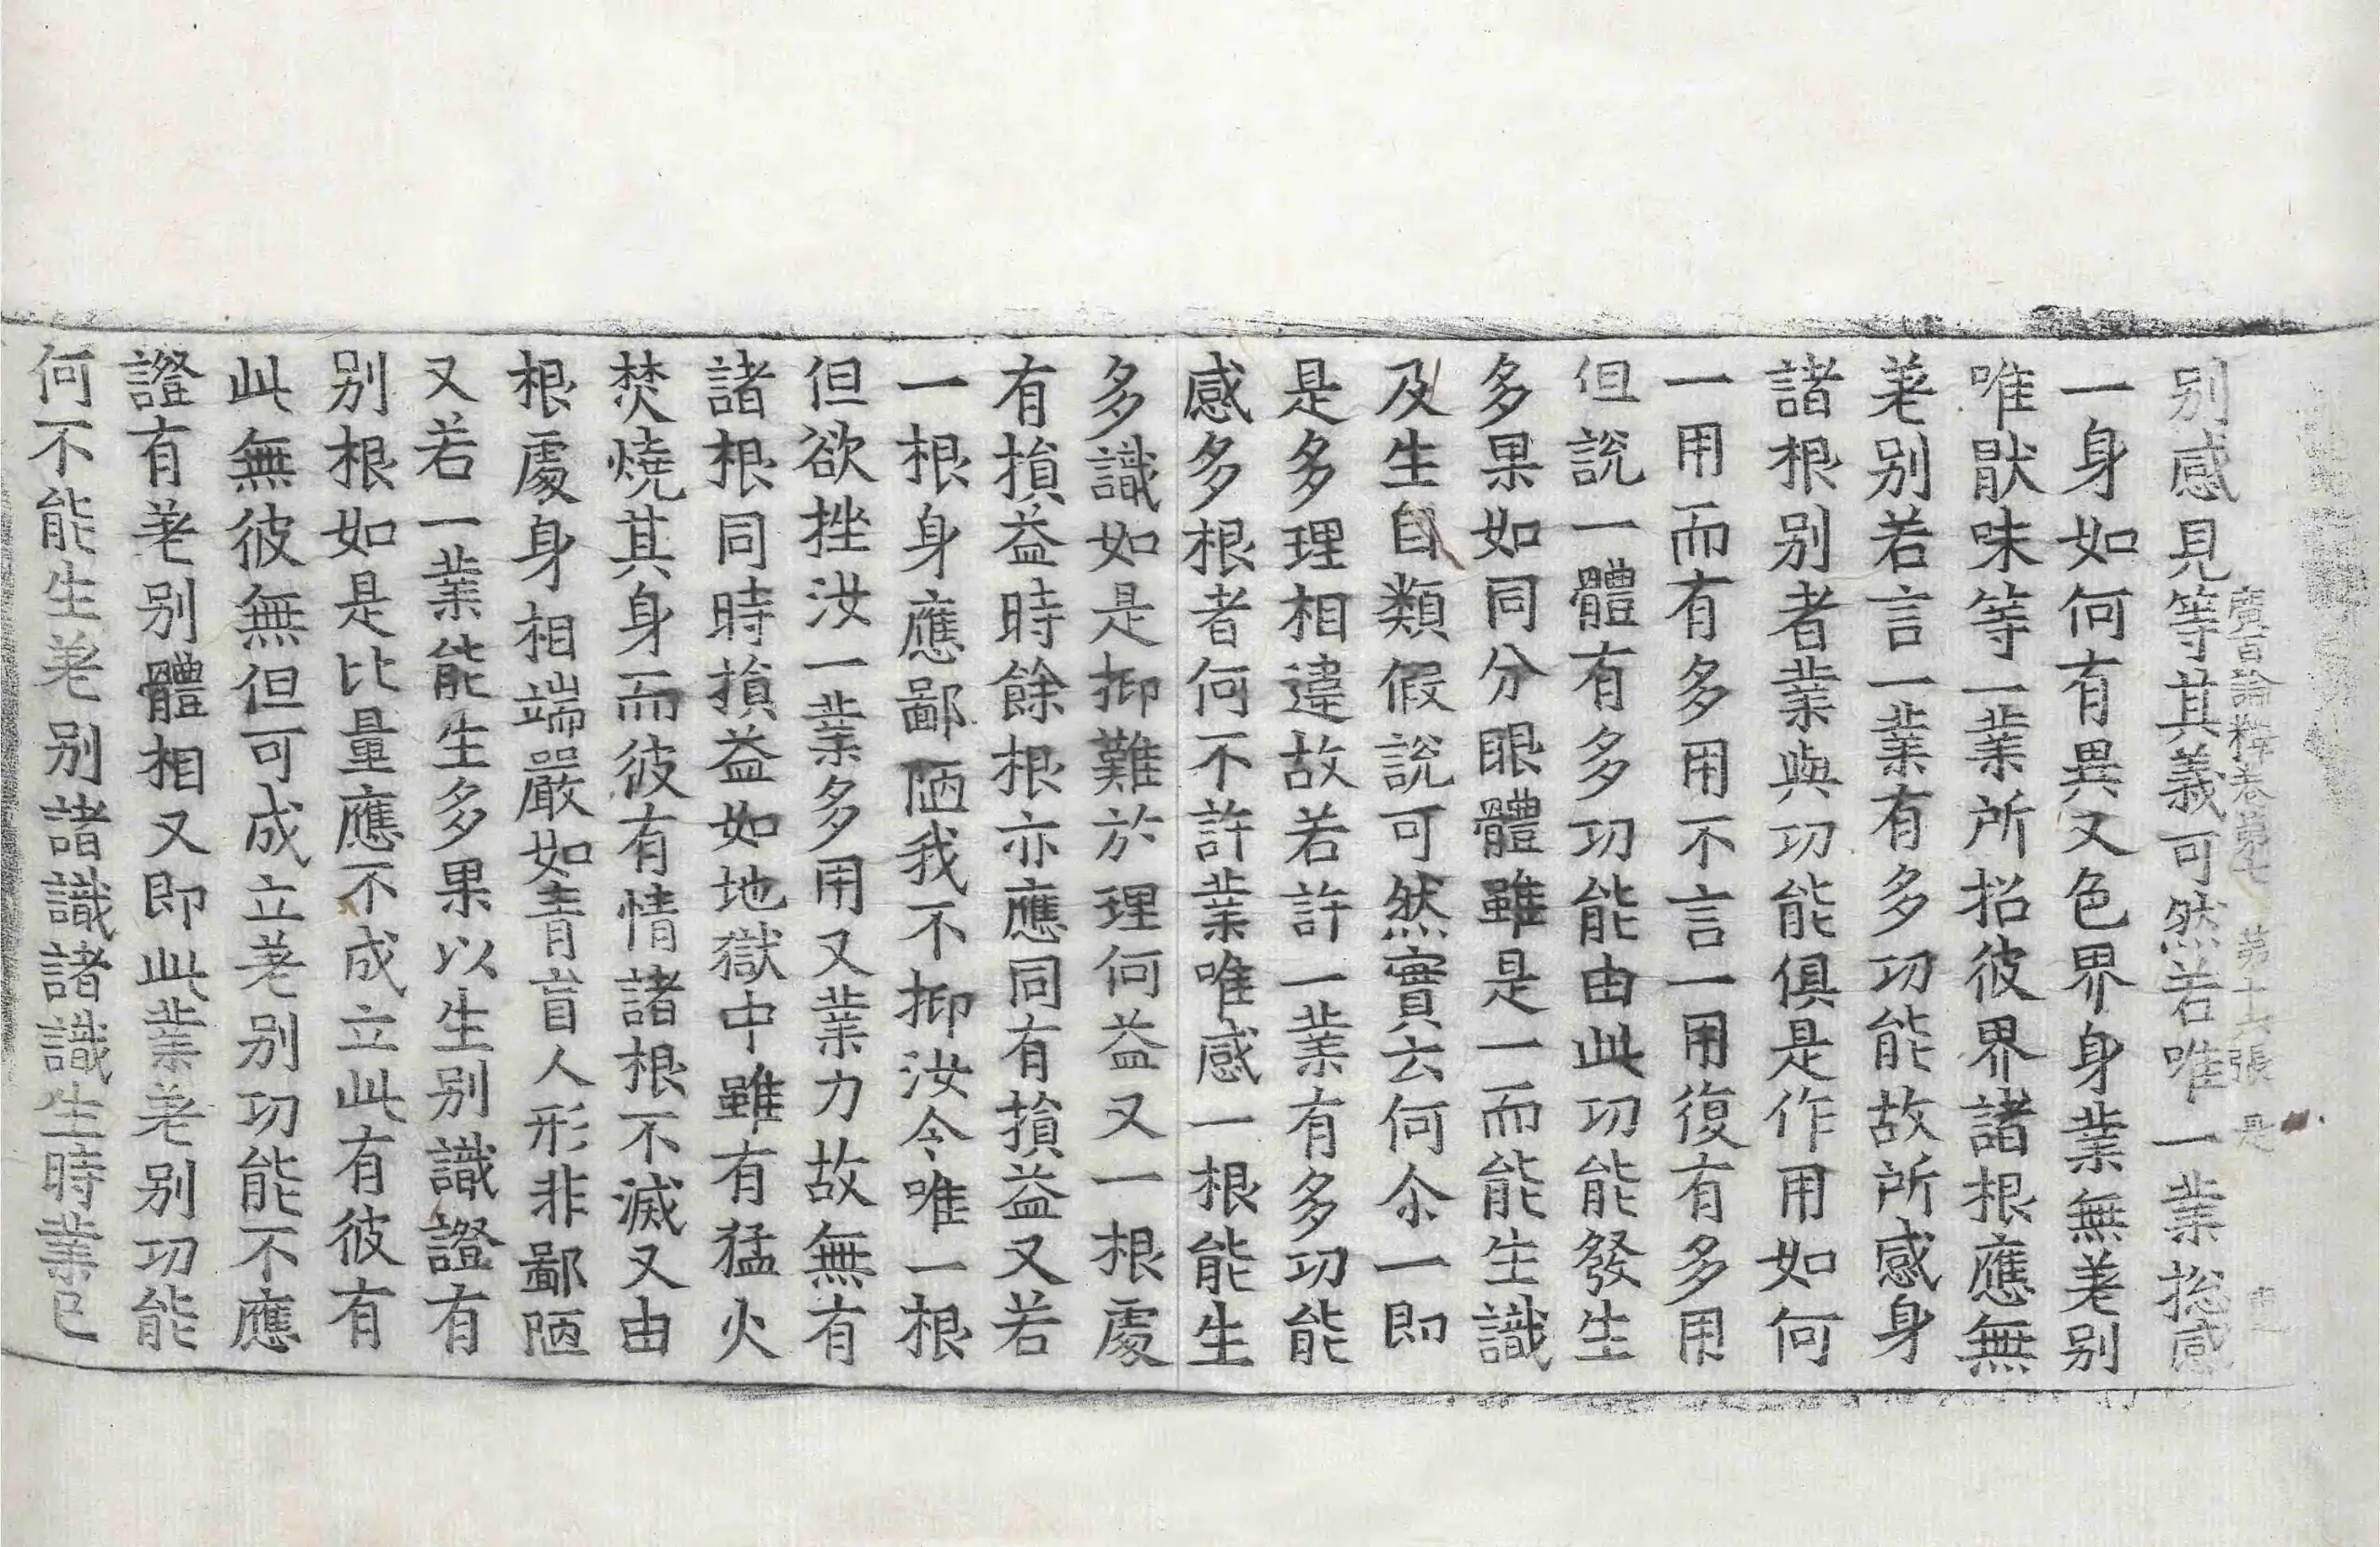 廣百論釋卷第七 第十六張 是
别感見等其義可然若唯一業揔感
一身如何有異又色界身業無差别
唯猒味等一業所招彼界諸根應無
差别若言一業有多功能故所感身
諸根别者業與功能俱是作用如何
一用而有多用不言一用復有多用
但說一體有多功能由此功能發生
多果如同分眼體雖是一而能生識
及生自類假說可然實云何尒一即
是多理相違故若許一業有多功能
感多根者何不許業唯感一根能生
多識如是抑難於理何益又一根處
有損益時餘根亦應同有損益又若
一根身應鄙陋我不抑汝令唯一根
但欲挫汝一業多用又業力故無有
諸根同時損益如地獄中雖有猛火
焚燒其身而彼有情諸根不滅又由
根處身相端嚴如青盲人形非鄙陋
又若一業能生多果以生别識證有
别根如是比量應不成立此有彼有
此無彼無但可成立差别功能不應
證有差别體相又即此業差别功能
何不能生差别諸識諸識生時業已